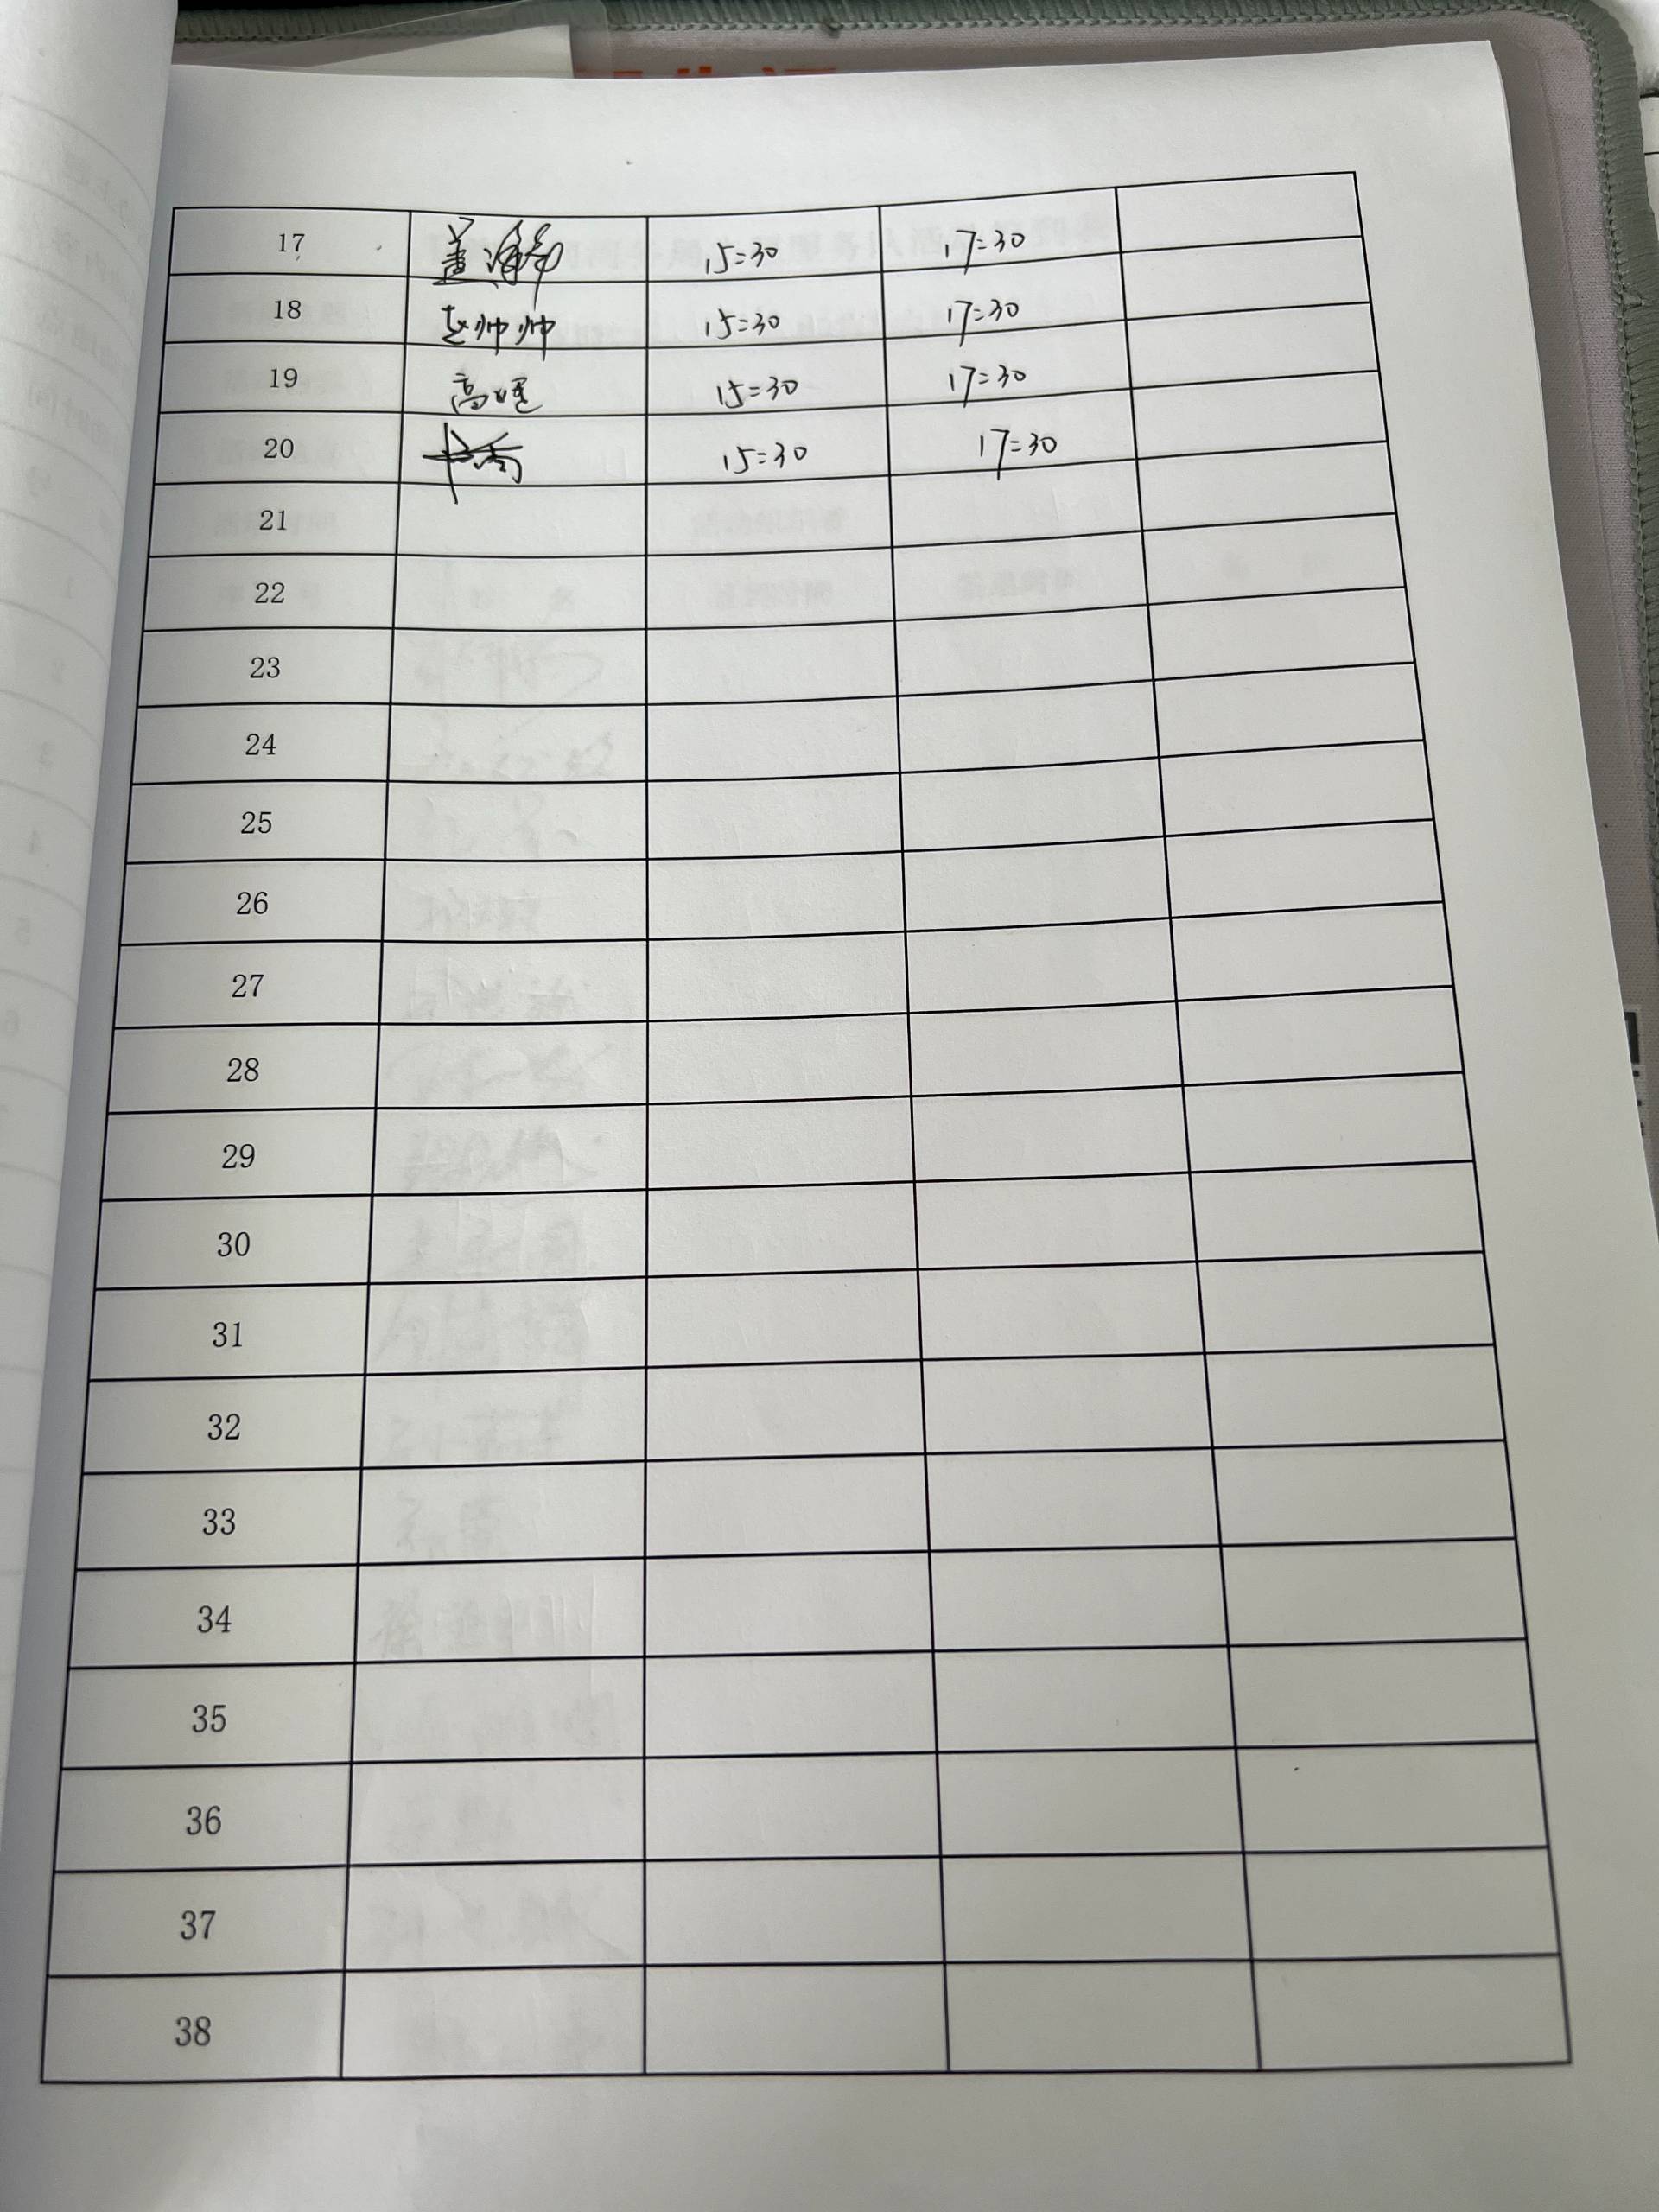 17 15=30 17=30
18 赵帅帅 15=30 17=30
19 高暖 15=30 17=30
20 15=30 17=30
21
22
23
24
25
26
27
28
29
30
31
32
33
34
35
36
37
38